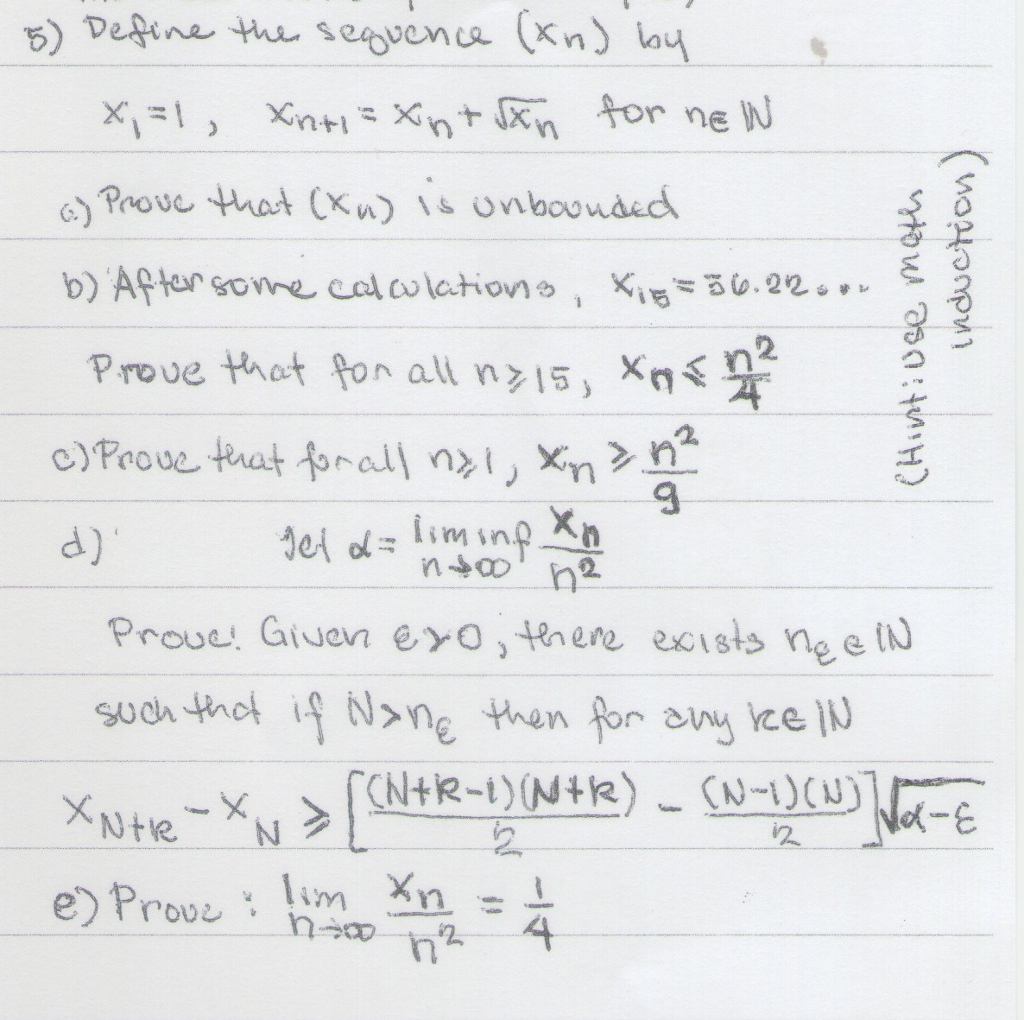 5) Define the sequence (xn) by
x1 = 1, xn+1 = xn + √xn for n∈ℕ
a) Prove that (xn) is unbounded
b) After some calculations, x15 = 56.22...
Prove that for all n ≥ 15, xn ≤ n²/4
c) Prove that for all n ≥ 1, xn ≥ n²/9
(Hint: use math
induction)
d) Let α = lim inf n→∞ xn/n²
Prove! Given ε > 0, there exists nε ∈ ℕ
such that if N > nε then for any k ∈ ℕ
xN+k - xN ≥ [(N+k-1)(N+k)/2 - (N-1)(N)/2] √α-ε
e) Prove : lim n→∞ xn/n² = 1/4